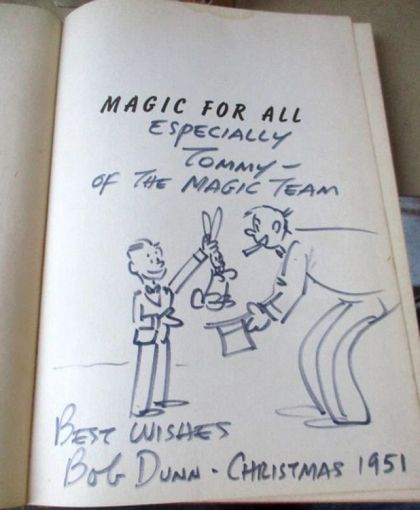 MAGIC FOR ALL
ESPECIALLY
TOMMY-
OF THE MAGIC TEAM
BEST WISHES
BOB DUNN - CHRISTMAS 1951